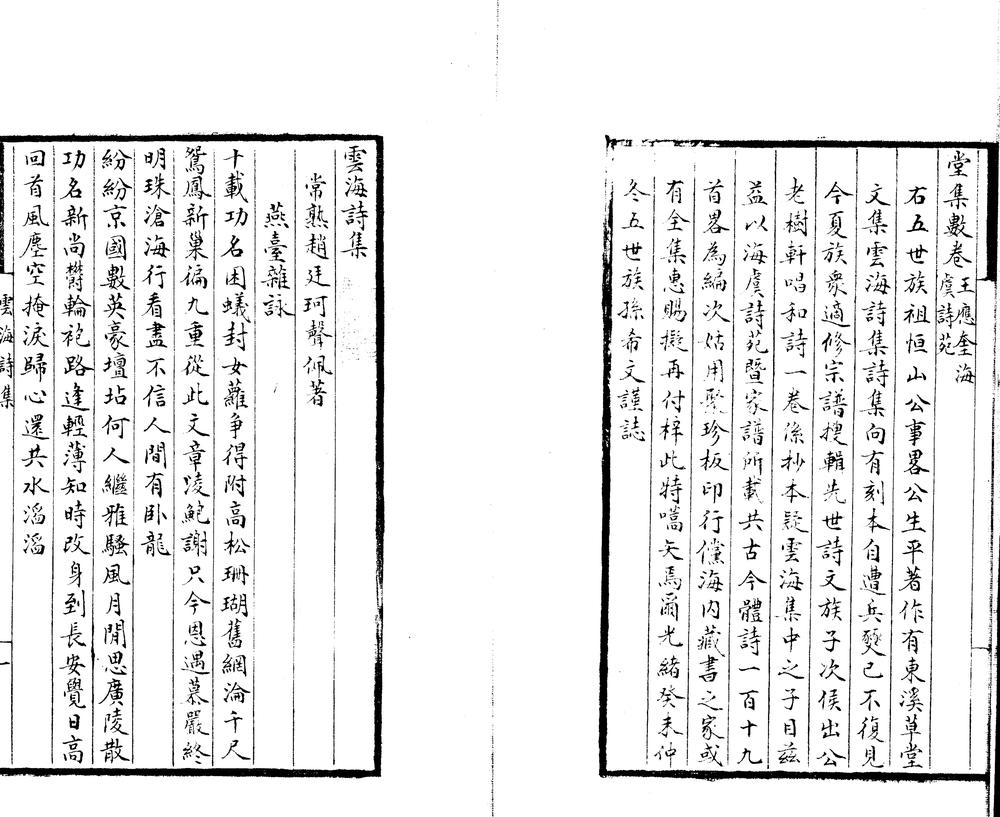 堂集數卷王應奎海虞詩苑
右五世族祖恒山公事畧公生平著作有東溪草堂
文集雲海詩集詩集向有刻本自遭兵燹已不復見
今夏族衆適修宗譜搜輯先世詩文族子次侯出公
老樹軒唱和詩一卷係抄本疑雲海集中之子目茲
益以海虞詩苑暨家譜所載共古今體詩一百十九
首畧為編次姑用聚珍板印行儻海内藏書之家或
有全集惠賜擬再付梓此特嚆矢焉爾光緒癸未仲
冬五世族孫希文謹誌
雲海詩集
常熟趙廷珂聲佩著
燕臺雜詠
十載功名困蟻封女蘿爭得附高松珊瑚舊網淪千尺
鴛鳳新巢徧九重從此文章凌鮑謝只今恩遇慕嚴終
明珠滄海行看盡不信人間有卧龍
紛紛京國數英豪壇坫何人繼雅騷風月閒思廣陵散
功名新尚欝輪袍路逢輕薄知時改身到長安覺日高
回首風塵空掩淚歸心還共水滔滔
雲海詩集
一